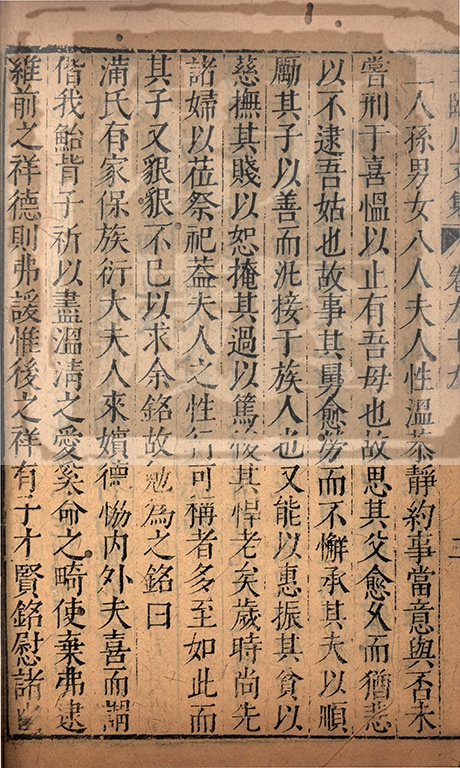 臨川文集 卷九十九
二人孫男女八人夫人性溫恭靜約事當意與否未
嘗刑于喜慍以止有吾母也故思其父愈久而猶悲
以不逮吾姑也故事其舅愈勞而不懈承其夫以順
勵其子以善而汎接于族人也又能以惠振其貧以
慈撫其賤以恕掩其過以篤後其悍老矣歲時尚先
諸婦以莅祭祀葢夫人之性行可稱者多至如此而
其子又貇貇不已以求余銘故勉為之銘曰
滿氏有家保族衍大夫人來嬪德協內外夫喜而謂
偕我鮐背子祈以盡溫凊之愛奚命之畸使棄弗逮
維前之祥德則弗諼惟後之祥有子才賢銘慰諸